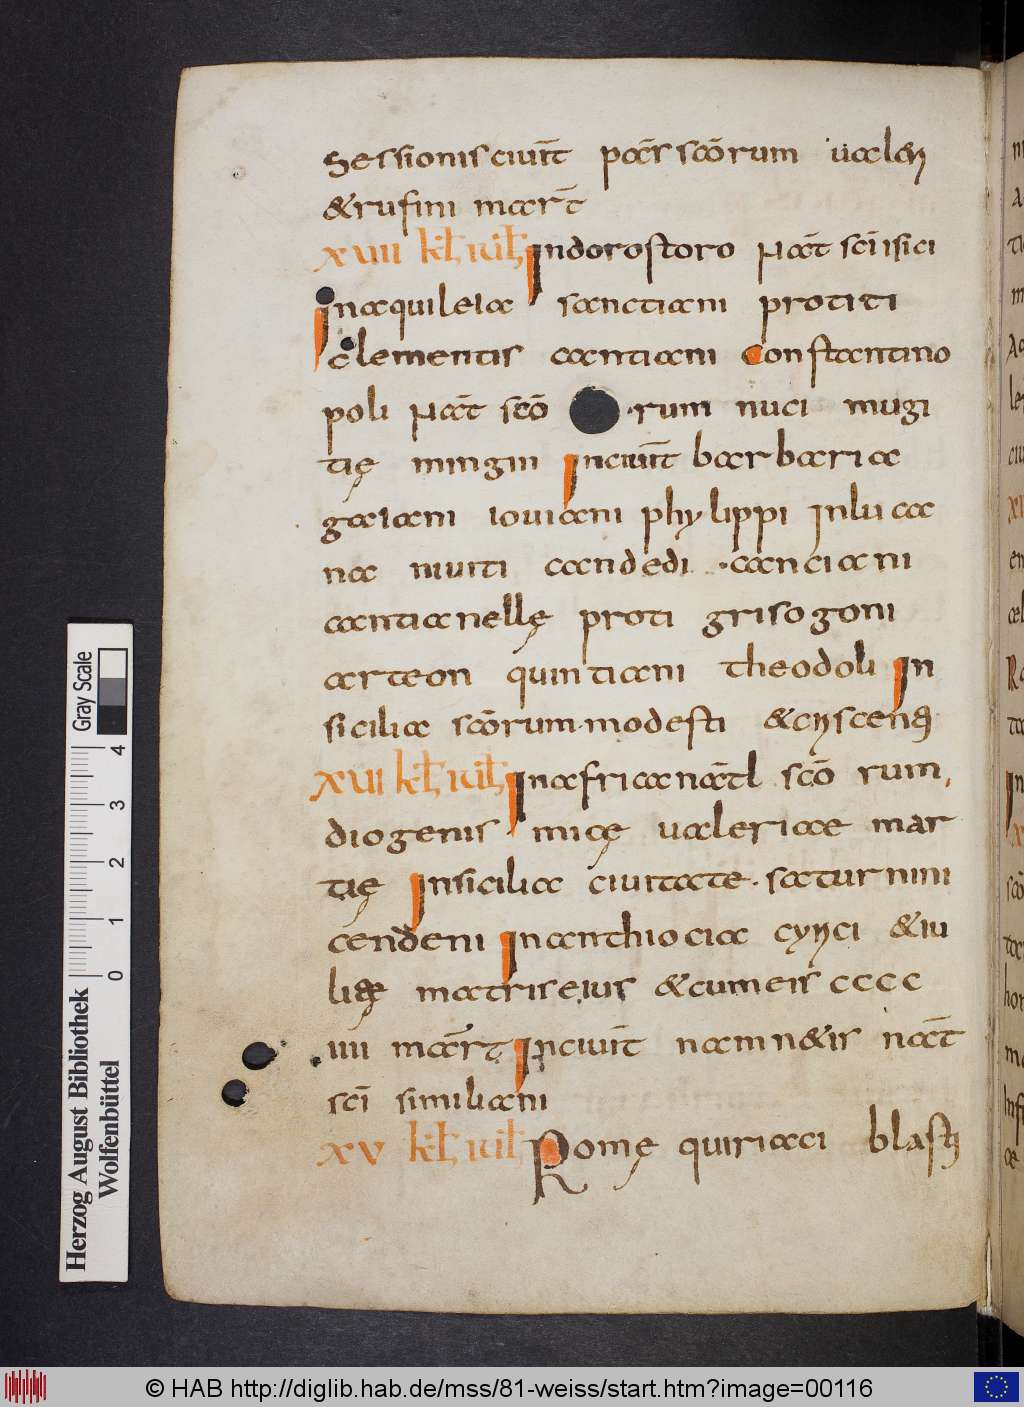 Sessionis ciuit̄ pas̄s scōrum ualeri
&rufini mart̄
xuiii kl̄ iul̄ Indorostoro Nat̄ sc̄i isici
Inaquileia sanctiani protiti
Clementis cantiani Constantino
poli Nat̄ scō rum nuci mugi
tię mingin Inciuit̄ barbaria
gaiani iouiani phylippi Inluca
na niuiti candedi · canciani
cantianellę proti grisogoni
arteon quintiani theodoli In
sicilia scōrum · modesti &cyscenti
xuii kl̄ iul̄ Inafricanat̄l scō rum
diogenis micę ualeriae mar
tię Insicilia ciuitate · saturnini
cendeni Inanthiocia cyrici &iu
lię matris eius &cumeis cccc
iiii mar̄t Inciuit̄ namn&is nat̄
sc̄i similiani
xv kl̄ iul̄ Romę quiriaci blasti
Herzog August Bibliothek
Wolfenbüttel
0 1 2 3 4
Gray Scale
© HAB http://diglib.hab.de/mss/81-weiss/start.htm?image=00116